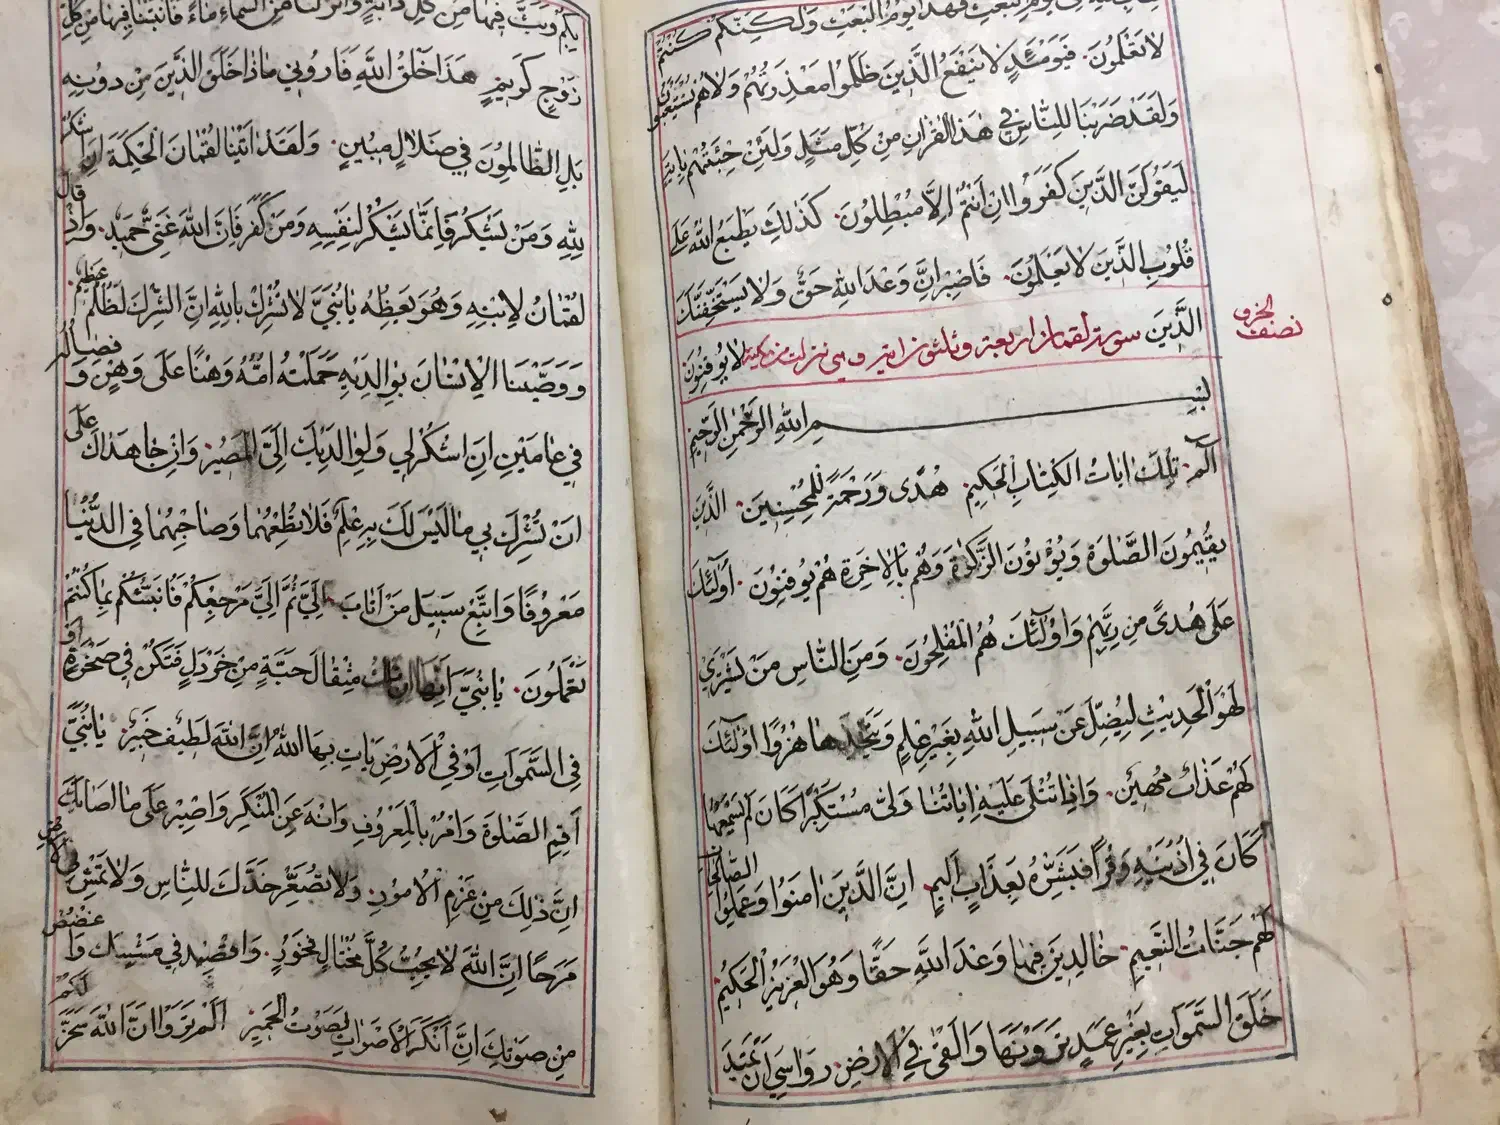 يوم البعث فهذا يوم البعث ولكنكم كنتم
لا تعلمون فيومئذ لا ينفع الذين ظلموا معذرتهم ولا هم يستعتبون
ولقد ضربنا للناس في هذا القران من كل مثل ولئن جئتهم باية
ليقولن الذين كفروا ان انتم الا مبطلون كذلك يطبع الله على
قلوب الذين لا يعلمون فاصبر ان وعد الله حق ولا يستخفنك
الذين سورة لقمان اربعة وثلثون اية وهي نزلت من مكية لا يوقنون
نصف الحزب
بسم الله الرحمن الرحيم
الم تلك ايات الكتاب الحكيم هدى ورحمة للمحسنين الذين
يقيمون الصلوة ويؤتون الزكوة وهم بالاخرة هم يوقنون اولئك
على هدى من ربهم واولئك هم المفلحون ومن الناس من يشتري
لهو الحديث ليضل عن سبيل الله بغير علم ويتخذها هزوا اولئك
لهم عذاب مهين واذا تتلى عليه اياتنا ولى مستكبرا كان لم يسمعها
كان في اذنيه وقرا فبشره بعذاب اليم ان الذين امنوا وعملوا الصالحات
لهم جنات النعيم خالدين فيها وعد الله حقا وهو العزيز الحكيم
خلق السموات بغير عمد ترونها والقى في الارض رواسي ان تميد
بكم وبث فيها من كل دابة وانزلنا من السماء ماء فانبتنا فيها من كل
زوج كريم هذا خلق الله فاروني ماذا خلق الذين من دونه
بل الظالمون في ضلال مبين ولقد اتينا لقمان الحكمة ان اشكر
لله ومن يشكر فانما يشكر لنفسه ومن كفر فان الله غني حميد واذ قال
لقمان لابنه وهو يعظه يا بني لا تشرك بالله ان الشرك لظلم عظيم
ووصينا الانسان بوالديه حملته امه وهنا على وهن وفصاله
في عامين ان اشكر لي ولوالديك الي المصير وان جاهداك على
ان تشرك بي ما ليس لك به علم فلا تطعهما وصاحبهما في الدنيا
معروفا واتبع سبيل من اناب الي ثم الي مرجعكم فانبئكم بما كنتم
تعملون يا بني انها ان تك مثقال حبة من خردل فتكن في صخرة او
في السموات او في الارض يات بها الله ان الله لطيف خبير يا بني
اقم الصلوة وامر بالمعروف وانه عن المنكر واصبر على ما اصابك
ان ذلك من عزم الامور ولا تصعر خدك للناس ولا تمش في الارض
مرحا ان الله لا يحب كل مختال فخور واقصد في مشيك واغضض
من صوتك ان انكر الاصوات لصوت الحمير الم تروا ان الله سخر لكم